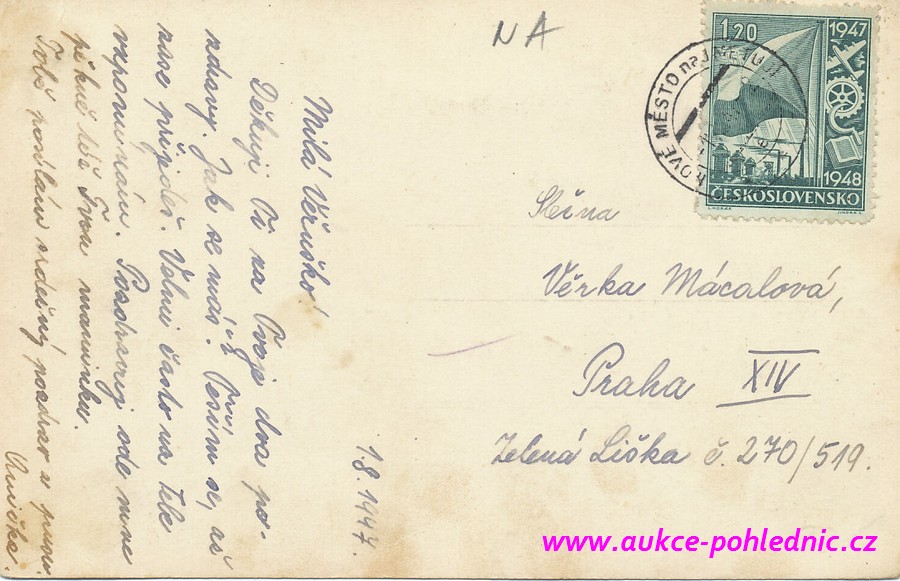 NA
1.20
1947
1948
ČESKOSLOVENSKO
MĚSTO
Slečna
Věrka Mácalová,
Praha XIV
Zelená Liška č. 270/519.
1.8.1947.
Milá Věruško!
Děkuji Ti za Tvoje dva po-
zdravy. Jak se máš? Těším se, až
zase přijdeš. Velmi často na Tebe
vzpomínám. Pozdravuj ode mne
pěkně též Tvou maminku.
Tobě posílám srdečný pozdrav a pusu
www.aukce-pohlednic.cz